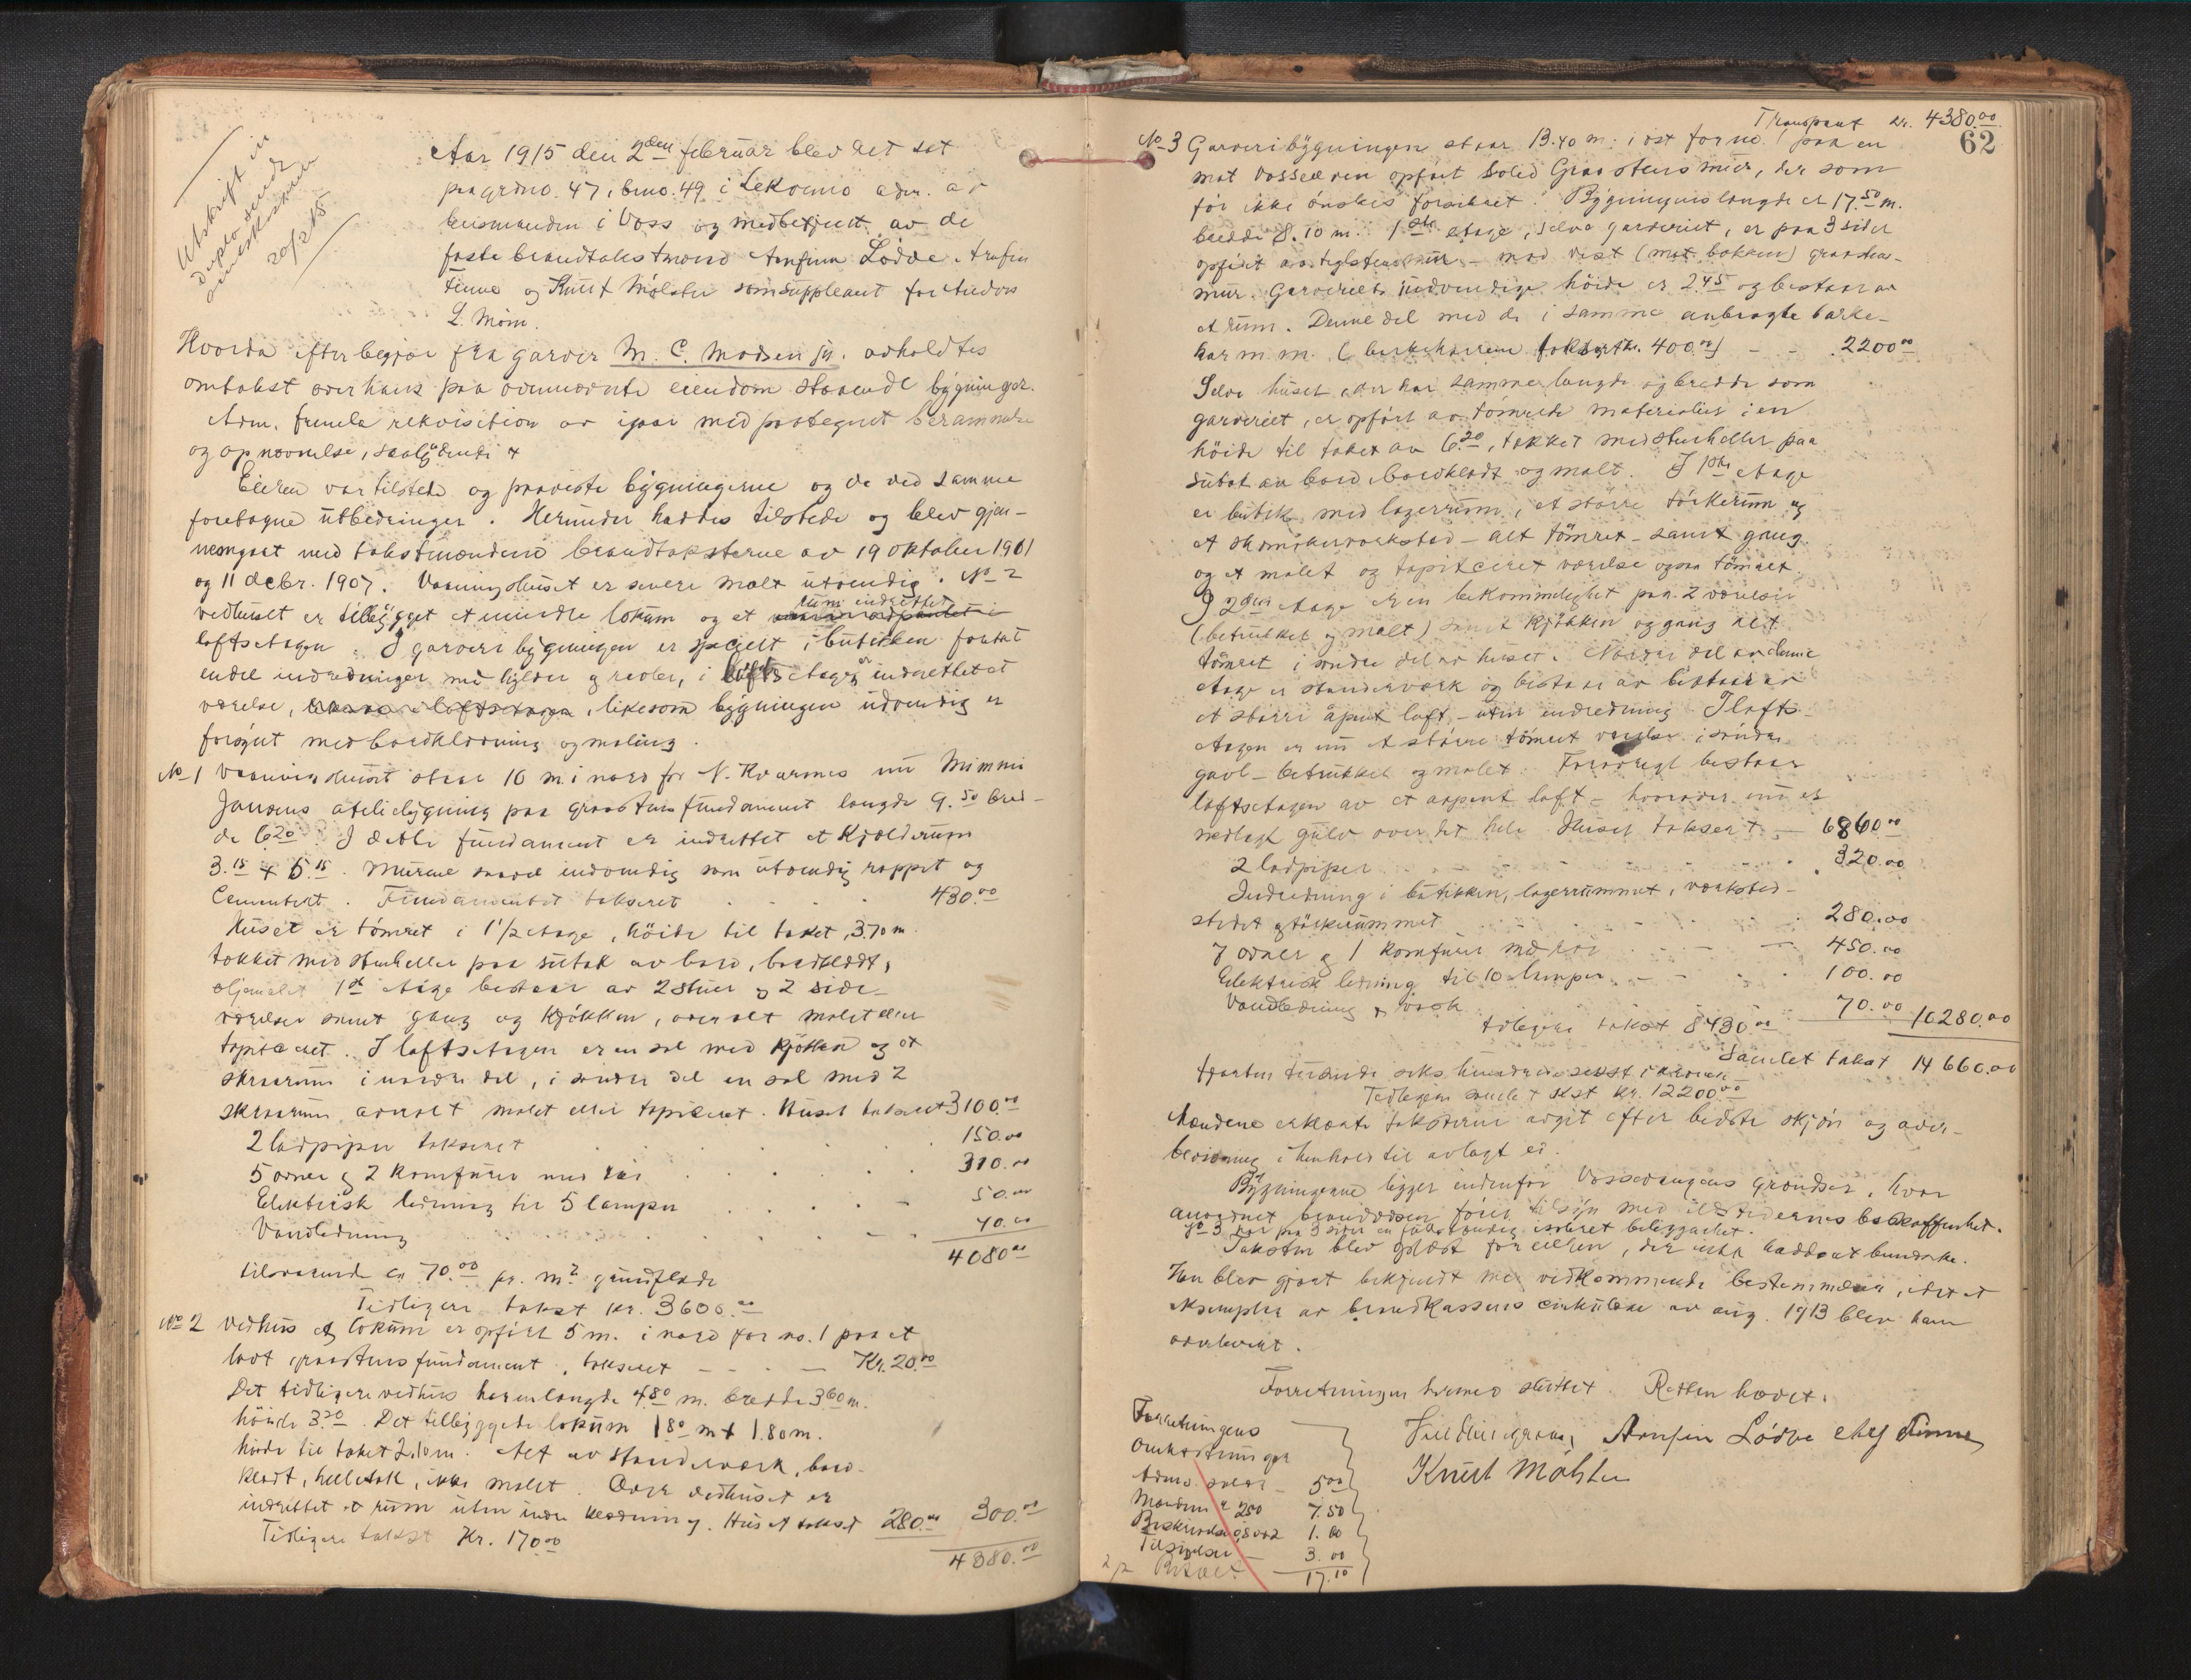 Utskrift in
duplo sendt
20/2 15
Aar 1915 den 2den februar blev ret sat
paa grdno. 47, brno. 49 i Lekvemo adm. av
lensmanden i Voss og medbetjent av de
faste brandtakstmænd Arnfinn Lödve Arnfin
Finne og Knut Mölster som suppleant for Anders
L. Möm.
Hvorda efter begjær fra garver M. C. Madsen jr. avholdtes
omtakst over hans paa ovennævnte eiendom staaende bygninger.
Adm. fremla rekvisition av igaar med paategnet berammelse
og opnævnelse, saalydende x
Eieren var tilstede og paaviste bygningerne og de ved samme
foretagne utbedringer. Herunder haddes tilstede og blev gjen-
nemgaat med takstmændene brandtaksterne av 19 oktober 1901
og 11 decbr. 1907. Vaaningshuset er senere malt utvendig. No 2
rum indrettet
vedhuset er tilbygget et mindre lokum og et i
loftsetagen. I garveribygningen er specielt i butikken foretat
endel indredninger med hylder og reoler, i loftsetagen er indrettet et
værelse, likesom bygningen udvendig er
forøget med bordklædning og maling.
No 1 Vaaningshuset staar 10 m. i nord for N. Kvarmes nu Mimmi
Jansens atelierbygning paa graastensfundament længde 9.50 bred-
de 6.20. I dette fundament er indrettet et Kjælderrum
3.15 x 5.15. Murene saavel indvendig som utvendig rappet og
Cementert. Fundamentet takseret 430.00
Huset er tömret i 1 1/2 etage, höide til taket, 3.70 m.
takket med stenheller paa sutak av bord, bordklædt,
oljemalet 1st etage bestaar av 2 stuer og 2 side-
værelser samt gang og Kjökken, overalt malet eller
tapiceret. I loftsetagen er en sal med Kjökken og et
skraarum i nordre del, i søndre del en sal med 2
skraarum overalt malet eller tapiceret. Huset takseret 3100.00
2 ladpiper takseret 150.00
5 ovner og 2 komfurer med rør 310.00
Elektrisk ledning til 5 lamper 50.00
Vandledning 40.00
4080.00
tilsvarende ca 70.00 pr. m2 grundflade
Tidligere takst kr. 3600.00
No 2 Vedhus og lokum er opfört 5 m. i nord for no. 1 paa et
lavt graastensfundament, takseret Kr. 20.00
Det tidligere vedhus har en længde 4.80 m. bredde 3.60 m.
höide 3.20. Det tilbyggede lokum 1.80 m x 1.80 m.
höide til taket 2.10 m. Alt av standerværk, bord-
klædt, helletak, ikke malet. Over vedhuset er
indrettet et rum uten indre klædning. Huset takst 280.00 300.00
Tidligere takst Kr. 170.00
4380.00
Transport Kr. 4380.00
62
No 3 Garveribygningen staar 13.40 m. i öst for no. 1 paa en
mot Vosseelven opfört solid Graastensmur, der som
för ikke önskes forsikret. Bygningens længde er 17.50 m.
bredde 8.10 m. 1ste etage, selve garveriet, er paa 3 sider
opfört av teglstensmur - mod vest (mot bakken) graastens-
mur. Garveriets indvendige höide er 2.45 og bestaar av
et rum. Denne del med de i samme anbragte barke-
kar m. m. (barkekarrene takseret kr. 400.00) 2200.00
Selve huset, der har samme længde og bredde som
garveriet, er opfört av tömrede materialier i en
höide til taket av 6.20, takket med stenheller paa
sutak av bord bordklædt og malt. I 1ste etage
er butik med lagerrum, et større tørkerum og
et skomakerværksted - alt tömret - samt gang
og et malet og tapitceret værelse ogsaa tömret.
I 2den etage er en bekvemmelighet paa 2 værelser
(betrukket og malt) samt Kjökken og gang alt
tömret i söndre del av huset. Nordre del av denne
etage er standerværk og bestaar av bestaar av
et større åpent loft - uten indredning. I lofts-
etagen er nu et større tömret værelse i söndre
gavl - betrukket og malet. Forøvrigt bestaar
loftsetagen av et aapent loft - hvorover nu er
nedlagt gulv over det hele. Huset takseret 6860.00
2 ladpiper 320.00
Indredning i butikken, lagerrummet, værksted-
stedet og tørkerummet 280.00
7 ovner og 1 komfur med rör 450.00
Elektrisk ledning til 10 lamper 100.00
Vandledning & vask 70.00 10280.00
tidligere takst 8430.00
Samlet takst 14660.00
fjorten tusinde seks hundrede seksti kroner
Tidligere samlet takst kr. 12200.00
Mændene erklærte taksterne avgit efter bedste skjön og over-
bevisning i henhold til avlagt ed.
Bygningerne ligger indenfor Vossevangens Grændser, hvor
anordnet brandvæsen förer tilsyn med ildstedernes beskaffenhet.
No 3 har paa 3 sider en fuldstændig isoleret beliggenhet.
Taksten blev oplæst for eieren, der intet hadde at bemerke.
Han blev gjort bekjendt med vedkommende bestemmelser, idet et
eksemplar av brandkassens cirkulære av aug. 1913 blev ham
overlevert.
Forretningen hermed sluttet. Retten hævet.
Arnfin Lödve Finne
Knut Mølster
Forretningens
omkostninger
Adm. 5.00
Mændene a 2.50 7.50
1.60
Tilsigelse 3.00
17.10
Betalt